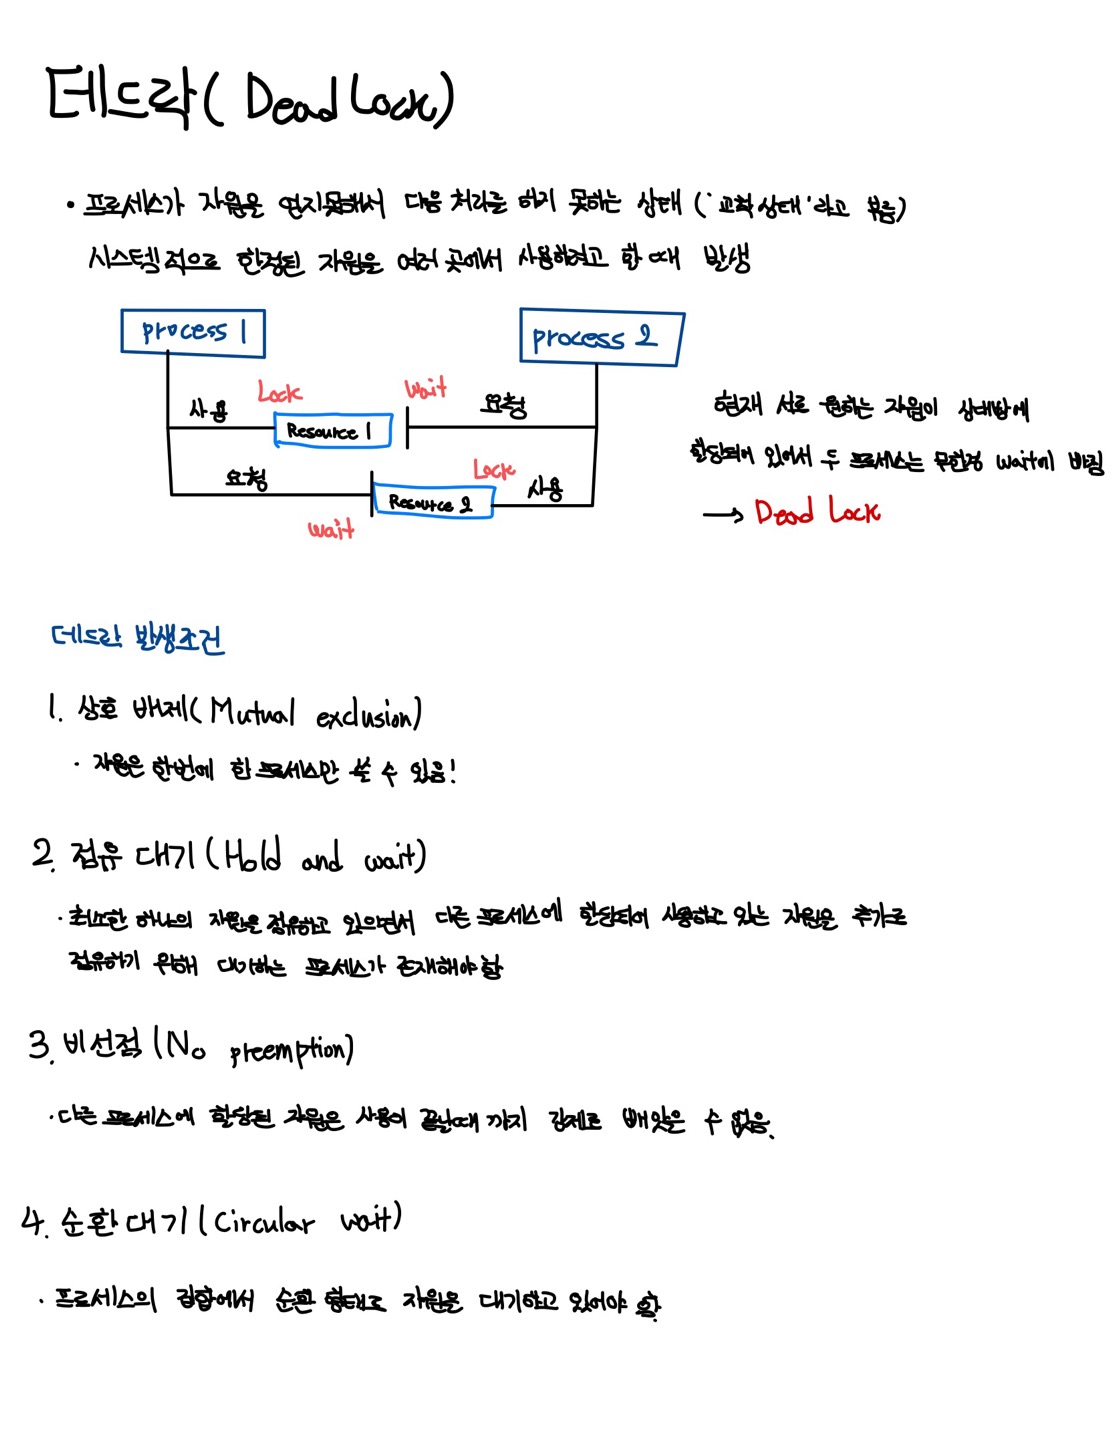 데드락( Dead Lock)
• 프로세스가 자원을 얻지못해서 다음 처리를 하지 못하는 상태 ('교착상태'라고 부름)
시스템적으로 한정된 자원을 여러 곳에서 사용하려고 할 때 발생
process 1
process 2
Lock
wait
사용
Resource 1
요청
요청
Lock
Resource 2
사용
wait
현재 서로 원하는 자원이 상대방에
할당되어 있어서 두 프로세스는 무한정 wait에 빠짐
→ Dead Lock
데드락 발생조건
1. 상호 배제( Mutual exclusion)
· 자원은 한번에 한 프로세스만 쓸 수 있음!
2. 점유 대기 (Hold and wait)
· 최소한 하나의 자원을 점유하고 있으면서 다른 프로세스에 할당되어 사용하고 있는 자원을 추가로
점유하기 위해 대기하는 프로세스가 존재해야 함
3. 비선점 (No preemption)
· 다른 프로세스에 할당된 자원은 사용이 끝날때 까지 강제로 빼앗을 수 없음.
4. 순환대기 (Circular wait)
· 프로세스의 집합에서 순환 형태로 자원을 대기하고 있어야 함.